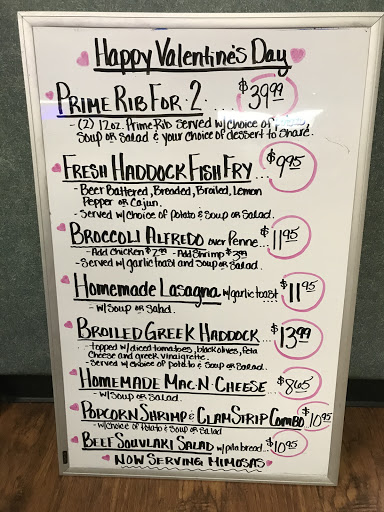 Happy Valentine's Day
PRIME RIB FOR 2 $39.99
- (2) 12oz. Prime Rib Served w/ choice of potato
Soup or Salad & your choice of dessert to share.
FRESH HADDOCK FISH FRY... $9.95
- Beer Battered, Breaded, Broiled, Lemon
Pepper or Cajun.
- Served w/ choice of Potato & Soup or Salad.
BROCCOLI ALFREDO over Penne... $11.95
- Add Chicken $2.99 - Add Shrimp $3.99
- Served w/ garlic toast and Soup or Salad.
Homemade Lasagna w/garlic toast $11.95
- w/ Soup or Salad.
BROILED GREEK HADDOCK... $13.99
- topped w/ diced tomatoes, black olives, feta
Cheese and greek vinaigrette.
- Served w/ choice of potato & Soup or Salad.
HOMEMADE MAC-N-CHEESE $8.65
- w/ Soup or Salad.
POPCORN SHRIMP & CLAM STRIP COMBO $10.95
- w/ Choice of Potato & Soup or Salad
BEEF SOUVLAKI SALAD w/ pita bread... $10.95
NOW SERVING MIMOSAS